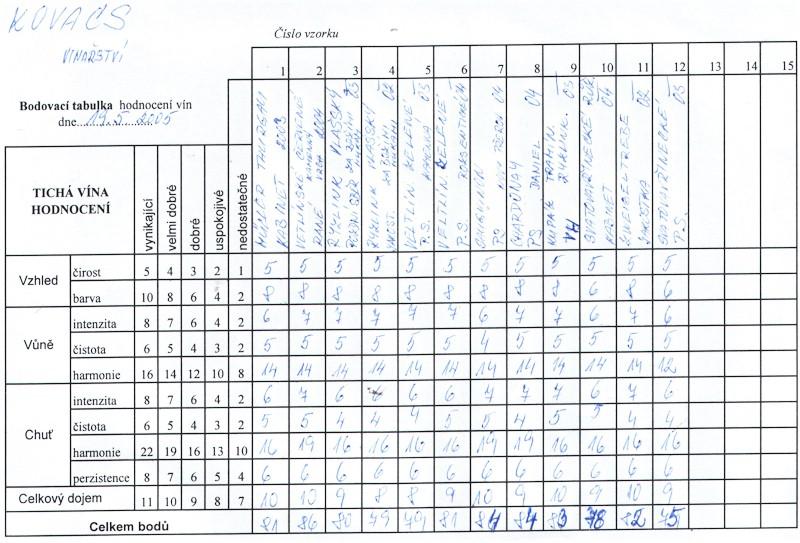 KOVACS
VINAŘSTVÍ
Číslo vzorku
1 2 3 4 5 6 7 8 9 10 11 12 13 14 15
Bodovací tabulka hodnocení vín
dne 19.5.2005
TICHÁ VÍNA HODNOCENÍ
vynikající
velmi dobré
dobré
uspokojivé
nedostatečné
MÜLLER THURGAU KABINET 2003
VELTLÍNSKÉ ČERVENÉ RANÉ 2004
RYZLINK VLAŠSKÝ 03
RYZLINK VLAŠSKÝ 02
VELTLÍN ZELENÉ P.S. 03
VELTLÍN ZELENÉ P.S. 04
P.S. 04
CHARDONAY PS DANIEL 04
TRAMÍN 03
SVATOVAVŘINECKÉ KABINET
ZWEIGELTREBE JAKOSTNÍ 02
SVATOVAVŘINECKÉ P.S. 03
Vzhled
čirost 5 4 3 2 1 5 5 5 5 5 5 5 5 5 5 5 5
barva 10 8 6 4 2 8 8 8 8 8 8 8 8 8 6 8 6
Vůně
intenzita 8 7 6 4 2 6 7 7 7 7 7 6 7 7 6 7 6
čistota 6 5 4 3 2 5 5 5 5 5 5 4 5 5 5 5 5
harmonie 16 14 12 10 8 14 14 14 14 14 14 14 14 14 14 14 12
Chuť
intenzita 8 7 6 4 2 6 7 6 6 6 6 7 7 7 6 7 6
čistota 6 5 4 3 2 5 5 4 4 4 5 5 4 5 5 4 4
harmonie 22 19 16 13 10 16 19 16 16 16 16 19 19 16 16 16 16
perzistence 8 7 6 5 4 6 6 6 6 6 6 6 6 6 6 6 6
Celkový dojem 11 10 9 8 7 10 10 9 8 8 9 10 9 10 9 10 9
Celkem bodů 81 86 80 79 79 81 84 84 83 78 82 75